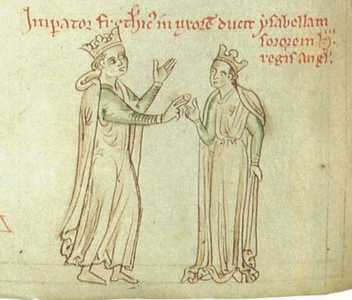 Imperator frethic' in uxorē ducit ysabellam
sororem h'
regis angl'.